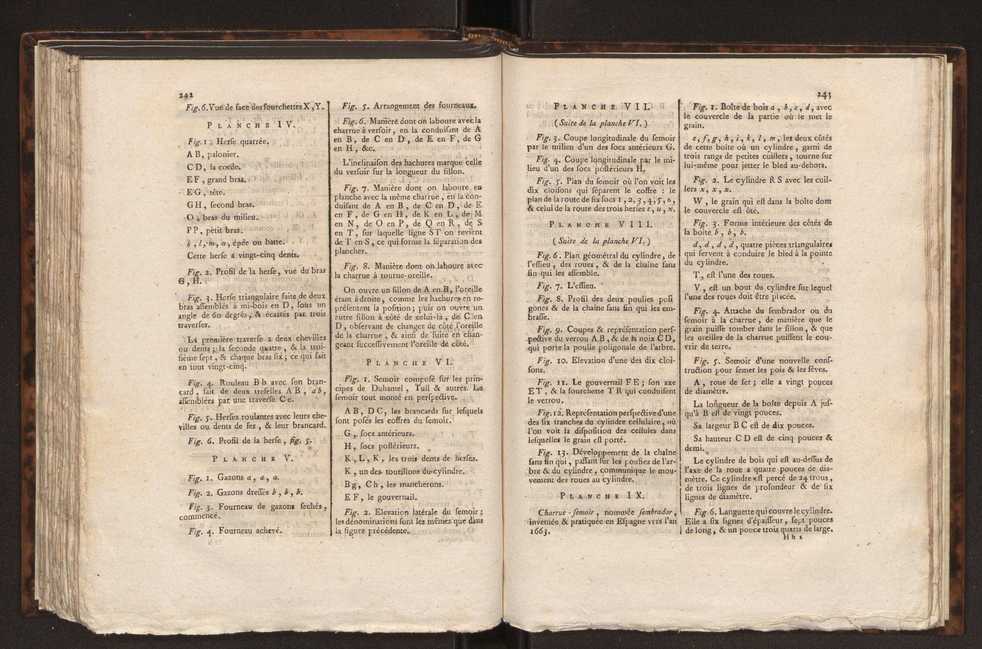 242
Fig. 6. Vue de face des fourchettes X, Y.
PLANCHE IV.
Fig. 1. Herse quarrée.
AB, palonier.
CD, la corde.
EF, grand bras.
EG, tête.
GH, second bras.
O, bras du milieu.
PP, petit bras.
k, l, m, n, épée ou batte.
Cette herse a vingt-cinq dents.
Fig. 2. Profil de la herse, vue du bras
G, H.
Fig. 3. Herse triangulaire faite de deux
bras assemblés à mi-bois en D, sous un
angle de 60 degrés, & écartés par trois
traverses.
La premiere traverse a deux chevilles
ou dents; la seconde quatre, & la troi-
sième sept, & chaque bras six; ce qui fait
en tout vingt-cinq.
Fig. 4. Rouleau B b avec son bran-
card, fait de deux tréselles AB, ab,
assemblées par une traverse Cc.
Fig. 5. Herses roulantes avec leurs che-
villes ou dents de fer, & leur brancard.
Fig. 6. Profil de la herse, fig. 5.
PLANCHE V.
Fig. 1. Gazons a, a, a.
Fig. 2. Gazons dressés b, b, b.
Fig. 3. Fourneau de gazons séchés,
commencé.
Fig. 4. Fourneau achevé.
Fig. 5. Arrangement des fourneaux.
Fig. 6. Manière dont on laboure avec la
charrue à versoir, en la conduisant de A
en B, de C en D, de E en F, de G
en H, &c.
L'inclinaison des hachures marque celle
du versoir sur la longueur du sillon.
Fig. 7. Manière dont on laboure en
planche avec la même charrue, en la con-
duisant de A en B, de C en D, de E
en F, de G en H, de K en L, de M
en N, de O en P, de Q en R, de S
en T, sur laquelle ligne ST on revient
de T en S, ce qui forme la séparation des
planches.
Fig. 8. Manière dont on laboure avec
la charrue à tourne-oreille.
On ouvre un sillon de A en B, l'oreille
étant à droite, comme les hachures en re-
présentent la position; puis on ouvre un
autre sillon à côté de celui-là, de C en
D, observant de changer de côté l'oreille
de la charrue, & ainsi de suite en chan-
geant successivement l'oreille de côté.
PLANCHE VI.
Fig. 1. Semoir composé sur les prin-
cipes de Duhamel, Tull & autres. Le
semoir tout monté en perspective.
AB, DC, les brancards sur lesquels
sont posés les coffres du semoir.
G, socs antérieurs.
H, socs postérieurs.
K, L, K, les trois dents de herses.
K, un des tourillons du cylindre.
Bg, Ch, les mancherons.
EF, le gouvernail.
Fig. 2. Elevation latérale du semoir;
les dénominations sont les mêmes que dans
la figure précédente.
243
PLANCHE VII.
(Suite de la planche VI.)
Fig. 3. Coupe longitudinale du semoir
par le milieu d'un des socs antérieurs G.
Fig. 4. Coupe longitudinale par le mi-
lieu d'un des socs postérieurs H.
Fig. 5. Plan du semoir où l'on voit les
dix cloisons qui séparent le coffre : le
plan de la route de six socs 1, 2, 3, 4, 5, 6,
& celui de la route des trois herses t, u, x.
PLANCHE VIII.
(Suite de la planche VI.)
Fig. 6. Plan géométral du cylindre, de
l'essieu, des roues, & de la chaîne sans
fin qui les assemble.
Fig. 7. L'essieu.
Fig. 8. Profil des deux poulies poli
gones & de la chaîne sans fin qui les em-
brasse.
Fig. 9. Coupes & représentation pers-
pective du verrou AB, & de la noix CD,
qui porte la poulie poligonale de l'arbre.
Fig. 10. Elévation d'une des dix cloi-
sons.
Fig. 11. Le gouvernail FE; son axe
ET, & la fourchette TR qui conduisent
le verrou.
Fig. 12. Représentation perspective d'une
des six tranches du cylindre cellulaire, où
l'on voit la disposition des cellules dans
lesquelles le grain est porté.
Fig. 13. Développement de la chaîne
sans fin qui, passant sur les poulies de l'ar-
bre & du cylindre, communique le mou-
vement des roues au cylindre.
PLANCHE IX.
Charrue-semoir, nommée sembrador,
inventée & pratiquée en Espagne vers l'an
1663.
Fig. 1. Boîte de bois a, b, c, d, avec
le couvercle de la partie où se met le
grain.
e, f, g, h, i, k, l, m, les deux côtés
de cette boîte où un cylindre, garni de
trois rangs de petites cuillers, tourne sur
lui-même pour jetter le bled au-dehors.
Fig. 2. Le cylindre RS avec les cuil-
lers x, x, x.
W, le grain qui est dans la boîte dont
le couvercle est ôté.
Fig. 3. Forme intérieure des côtés de
la boîte b, b, b.
d, d, d, d, quatre pièces triangulaires
qui servent à conduire le bled à la pointe
du cylindre.
T, est l'une des roues.
V, est un bout du cylindre sur lequel
l'une des roues doit être placée.
Fig. 4. Attache du sembrador ou du
semoir à la charrue, de manière que le
grain puisse tomber dans le sillon, & que
les oreilles de la charrue puissent le cou-
vrir de terre.
Fig. 5. Semoir d'une nouvelle cons-
truction pour semer les pois & les fèves.
A, roue de fer; elle a vingt pouces
de diamètre.
La longueur de la boîte depuis A jus-
qu'à B est de vingt pouces.
Sa largeur BC est de dix pouces.
Sa hauteur CD est de cinq pouces &
demi.
Le cylindre de bois qui est au-dessus de
l'axe de la roue a quatre pouces de dia-
mètre. Ce cylindre est percé de 24 trous,
de trois lignes de profondeur & de six
lignes de diamètre.
Fig. 6. Languette qui couvre le cylindre.
Elle a six lignes d'épaisseur, sept pouces
de long, & un pouce trois quarts de large.
Hh 2